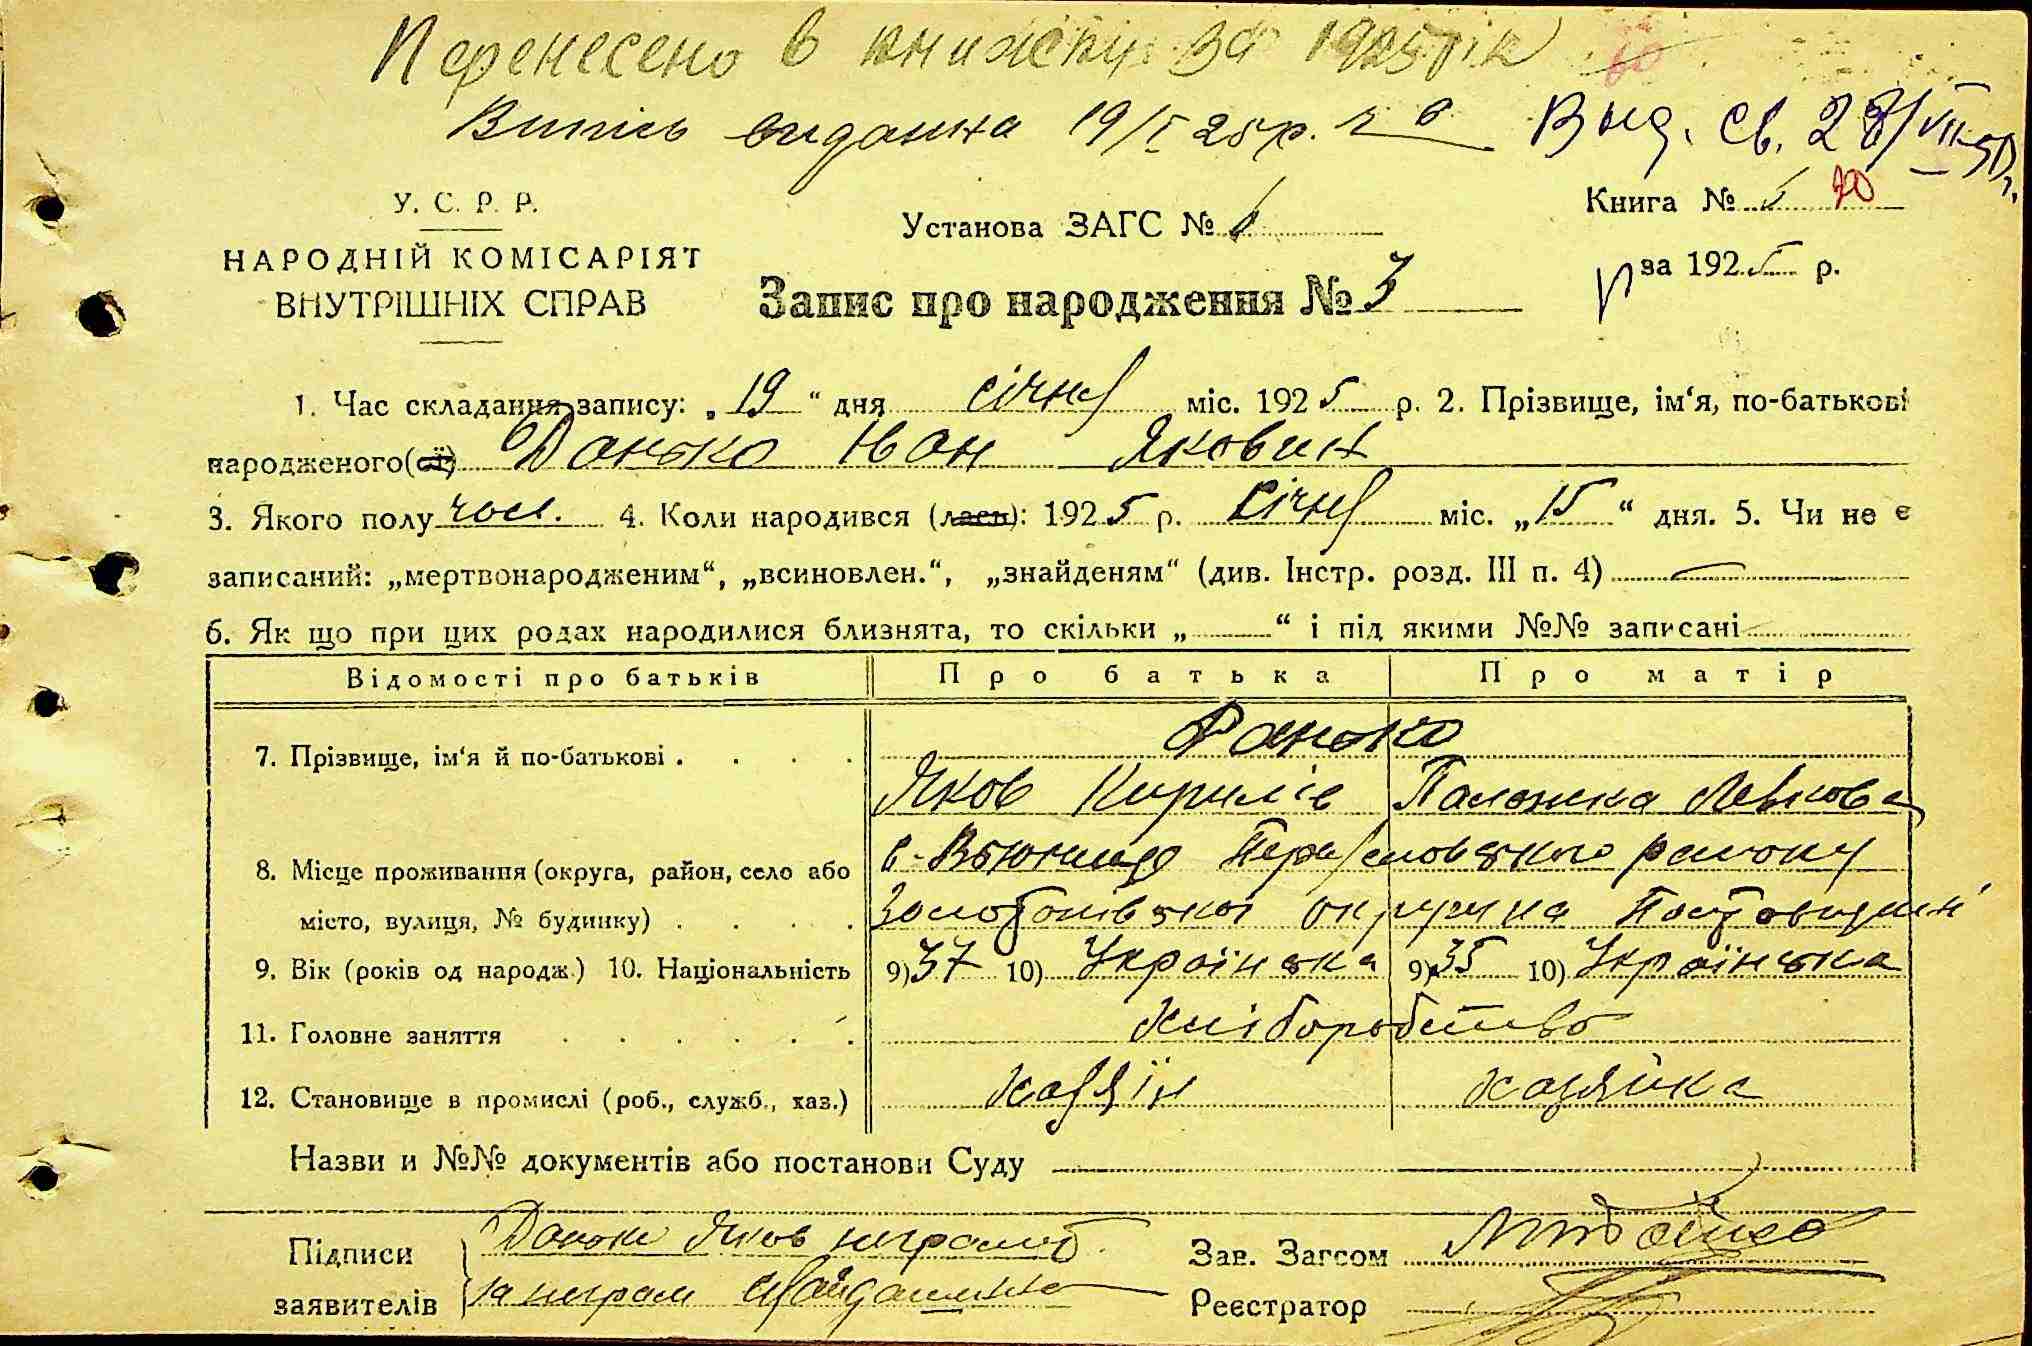 Перенесено в книжку за 1925 рік
Витпсь виданна 19/I 25 р. Выд. св. 28/VII-50 г.
У. С. Р. Р.
Установа ЗАГС № 1
Книга № 1 70
НАРОДНІЙ КОМІСАРІЯТ
ВНУТРІШНІХ СПРАВ
за 1925 р.
Запис про народження № 3
1. Час складання запису: „ 19 “ дня січня міс. 1925 р. 2. Прізвище, ім‘я, по-батькові
народженого(ої) Данько Іван Якович
3. Якого полу чол. 4. Коли народився (лась): 1925 р. Січня міс. „ 15 “ дня. 5. Чи не є
записаний: „мертвонародженим“, „всиновлен.“, „знайденям“ (див. Інстр. розд. III п. 4) —
6. Як що при цих родах народилися близнята, то скільки „ “ і під якими №№ записані
Відомості про батьків Про батька Про матір
7. Прізвище, ім‘я й по-батькові . . . . Данько
Яков Кирилів Палажка Левкова
8. Місце проживання (округа, район, село або с. Вьюнище Переяславського району
місто, вулиця, № будинку) . . . . Золотонівської округи на Полтавщині
9. Вік (років од народж.) 10. Національність 9) 37 10) Українська 9) 35 10) Українська
11. Головне заняття . . . . . . Хліборобство
12. Становище в промислі (роб., служб., хаз.) хазяїн хазяйка
Назви и №№ документів або постанови Суду
Підписи Данько Яков неграмот.
Зав. Загсом
заявителів за неграм
Реєстратор